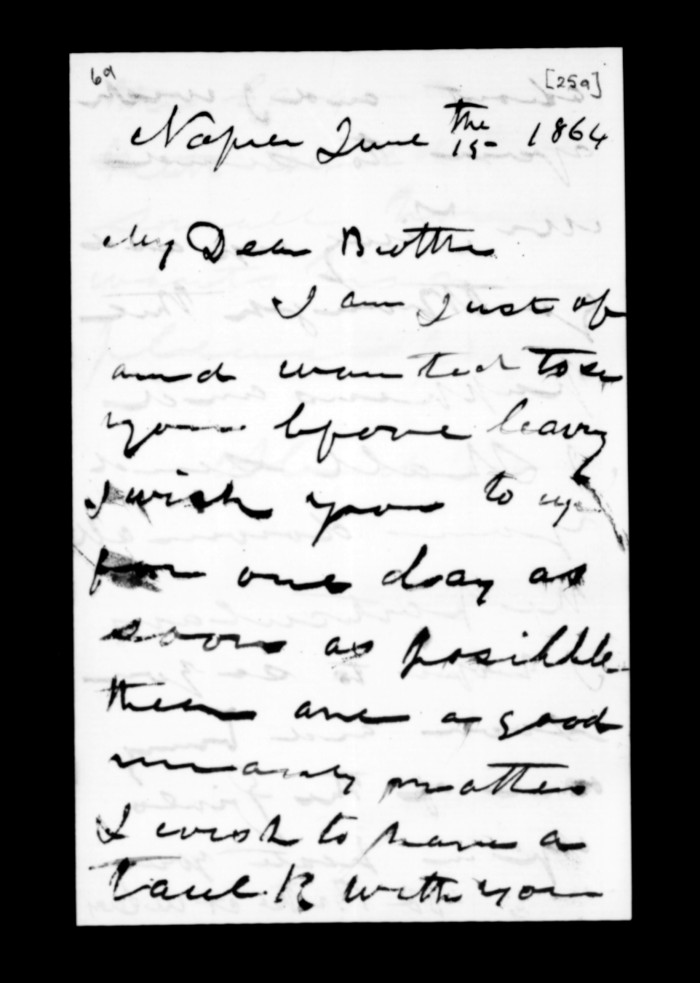 69
[259]
Napier June the
15 1864
My Dear Brother
I am just of
and wanted to se
you before leavng
I wish you to up
for one day as
soon as posibble
their are a good
many matters
I wish to have a
taulk with you